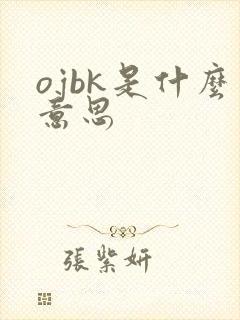 ojbk是什麼
意思
張紫妍